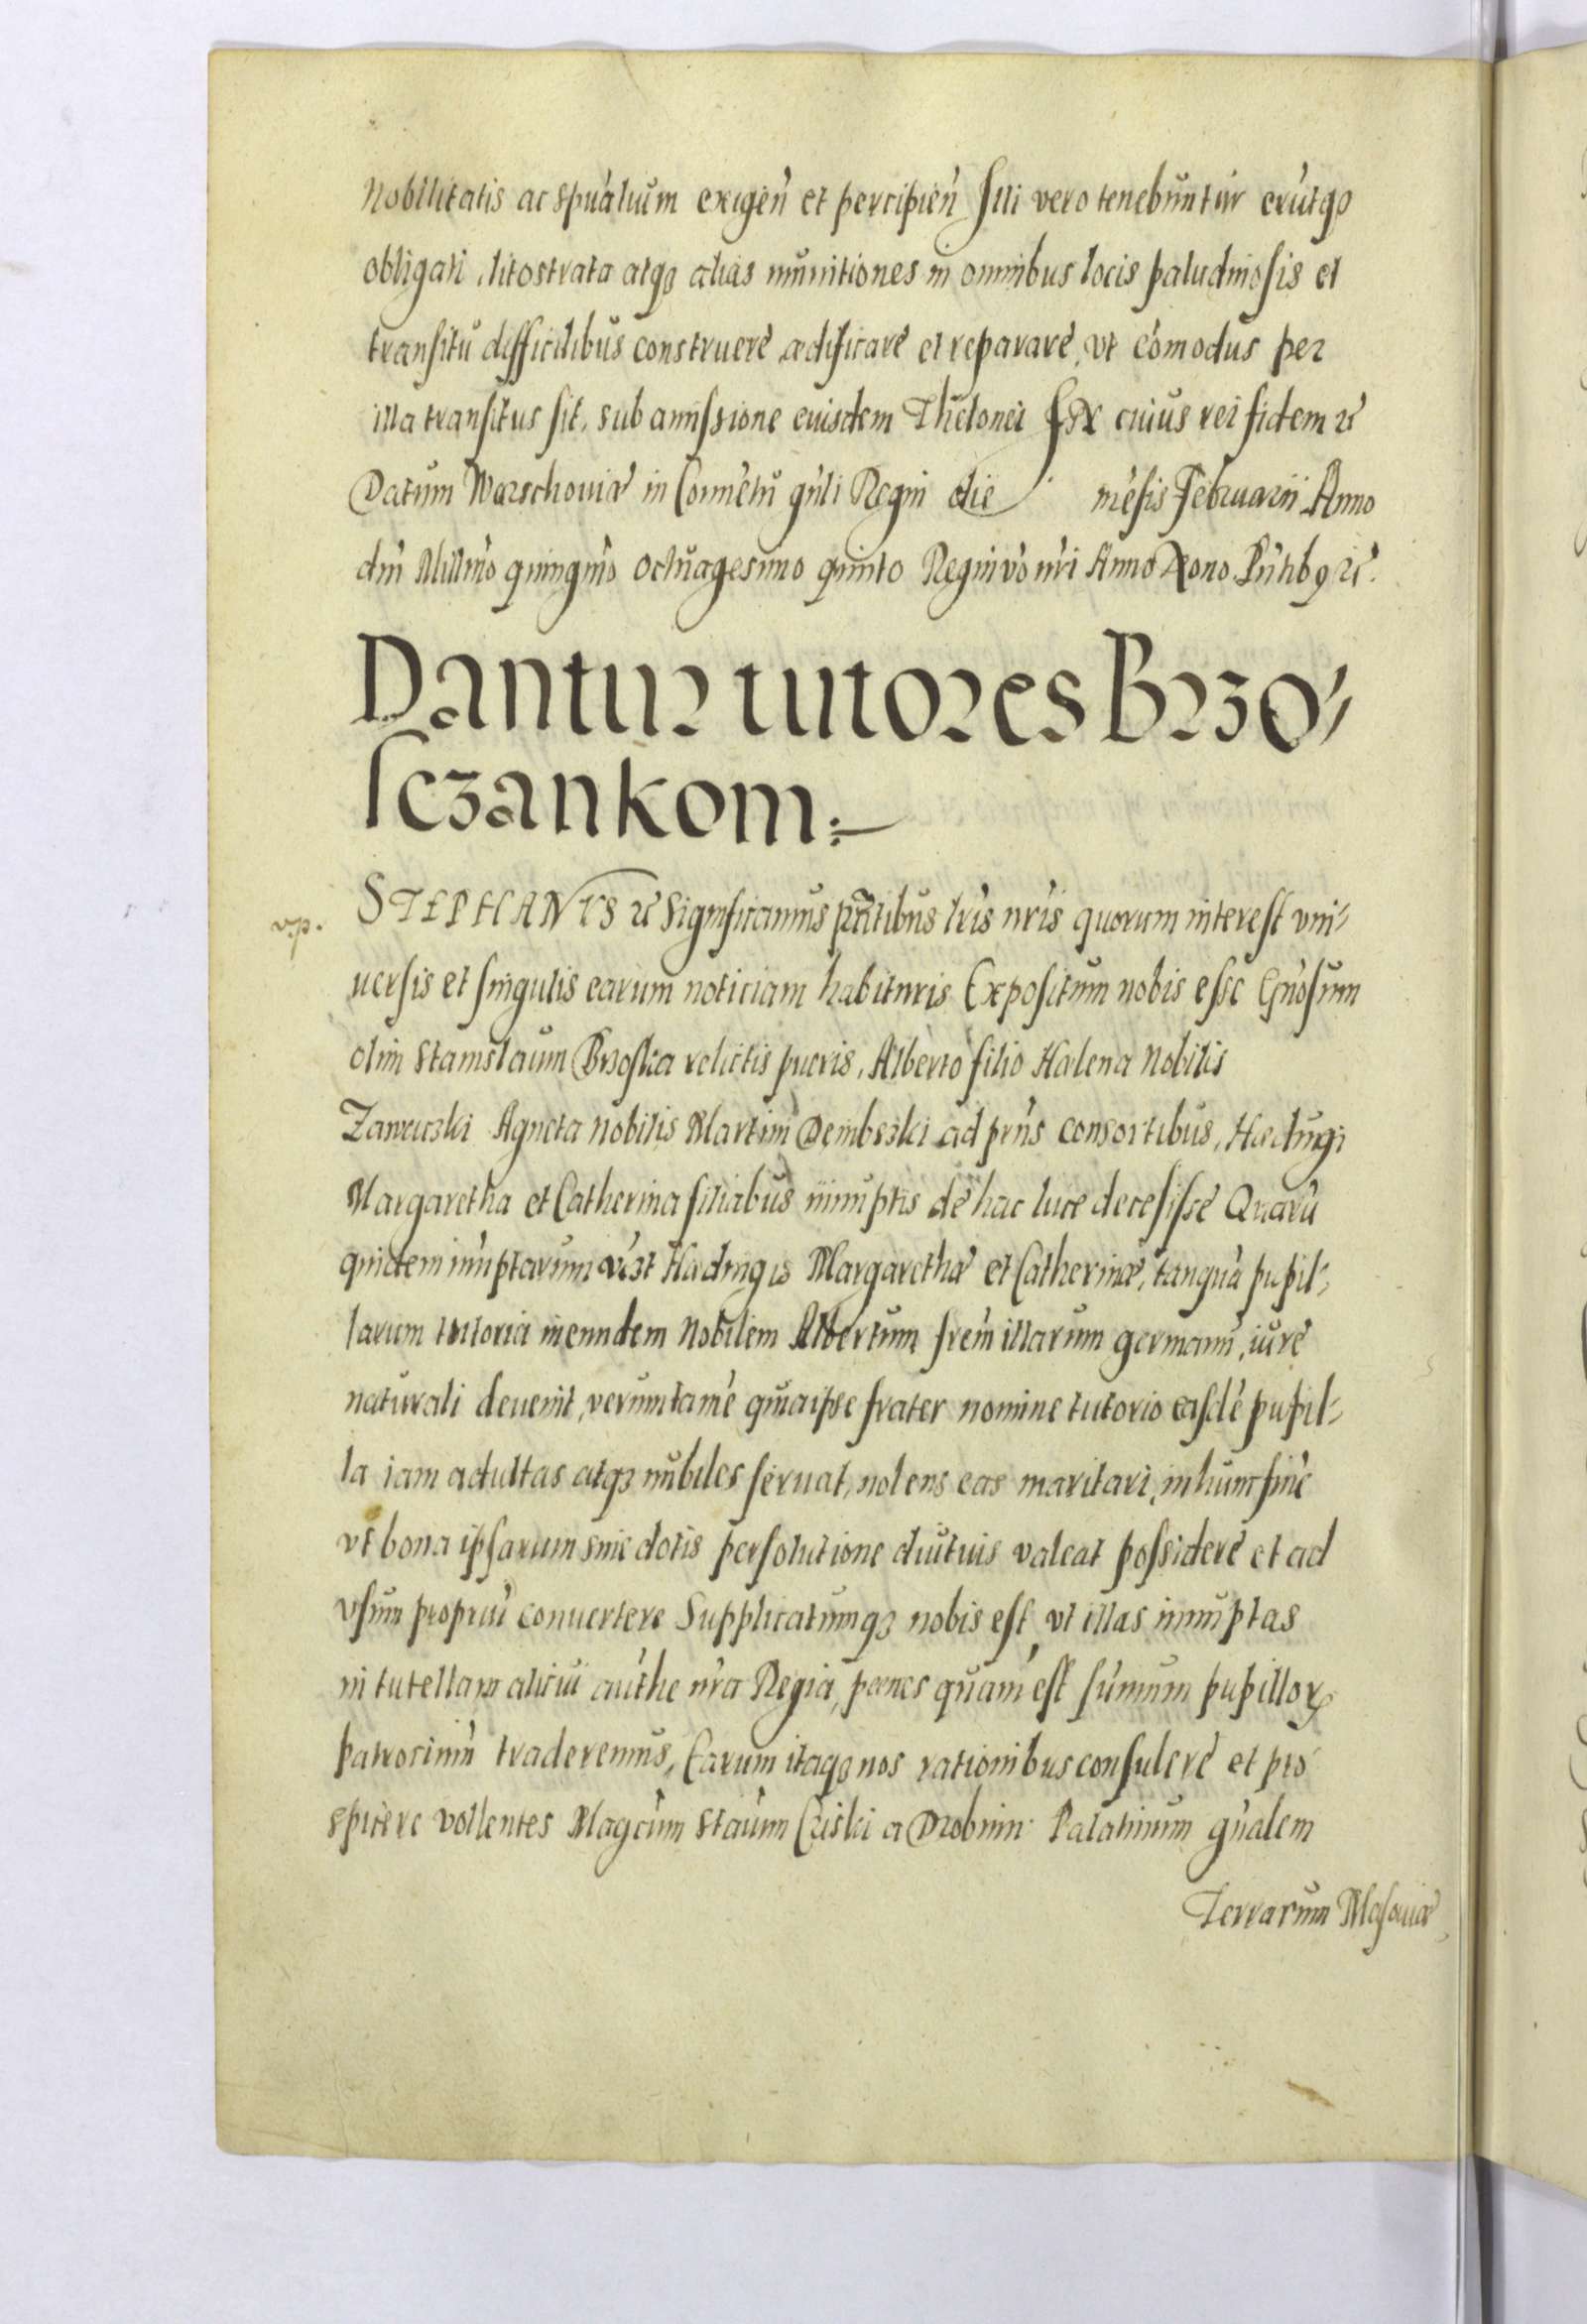 Nobilitatis ac spũalium exigeñ et percipieñ Illi vero tenebuntur erũtqȝ
obligati litostrata atqȝ alias munitiones in omnibus locis paludinosis et
transitu difficilibus construere ædificare et reparare, vt cõmodus per
illa transitus sit, sub amissione eiusdem Thelonei Ex cuius rei fidem &c
Datum Warschoviæ in Conuẽtu gñli Regni die mẽsis Februarii Anno
dñi Millmo quingmo octuagesimo quinto Regni vo nri Anno Nono Pñtibȝ &c.
Dantur tutores Brzo
sczankom.
v.p.
STEPHANVS &c Significamus pñtibus lris nris quorum interest vni
uersis et singulis earum noticiam habituris Expositum nobis esse Gñosum
olim Stanislaum Brzoska relictis pueris, Alberto filio Halena Nobilis
Zawiczki Agneta nobilis Martini Dembski ad pñs consortibus, Hædingi
Margaretha et Catherina filiabus innuptis de hac luce decesisse Quarũ
quidem inuptarum vizt Hædingis Margarethæ et Catherinæ, tanquã pupil
larum tutoria in eundem Nobilem Albertum frem illarum germanũ, iure
naturali deuenit, verumtamẽ quia ipse frater nomine tutorio easdẽ pupil
la iam adultas atqȝ nubiles seruat, nolens eas maritari, in hunc finẽ
vt bona ipsarum sine dotis persolutione diutuis valeat possidere et ad
vsum propriũ conuertere Supplicatumqȝ nobis est vt illas innuptas
in tutellam alicui authe nra Regia, pœnes quam est summum pupillorꝝ
patrociniũ traderemus, Earum itaqȝ nos rationibus consulere et pro
spicere vollentes Magcum Staum Criski a Drobnin Palatinum gñalem
Terrarum Masouiæ